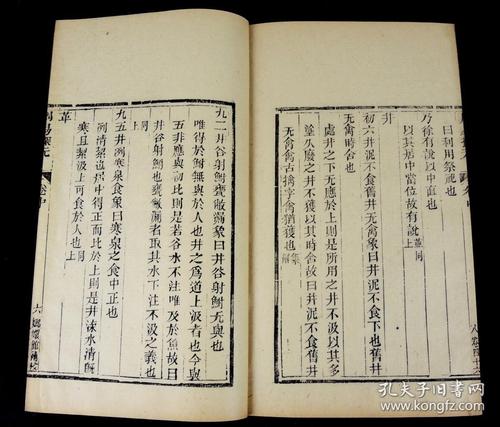 曰利用祭祀也
乃徐有說以中直也
以其居中當位故有說 同上
井
初六井泥不食舊井无禽象曰井泥不食下也舊井
无禽時舍也
處井之下无應於上則是所用之井不汲以其多
塗久廢之井不獲以其時舍故曰井泥不食舊井
无禽禽古擒字禽猶獲也 集解
九二井谷射鮒甕敝漏象曰井谷射鮒无與也
唯得於鮒無與於人也井之爲道上汲者也今與
五非應與初比則是若谷水不注唯及於魚故曰
井谷射鮒也甕敝漏者取其水下注不汲之義也
同上
九五井洌寒泉食象曰寒泉之食中正也
洌清絜也居中得正而比於上則是井渫水清旣
寒且絜汲上可食於人也 同上
革
周易探元
卷中
六
孔夫子旧书网
www.kongfz.com